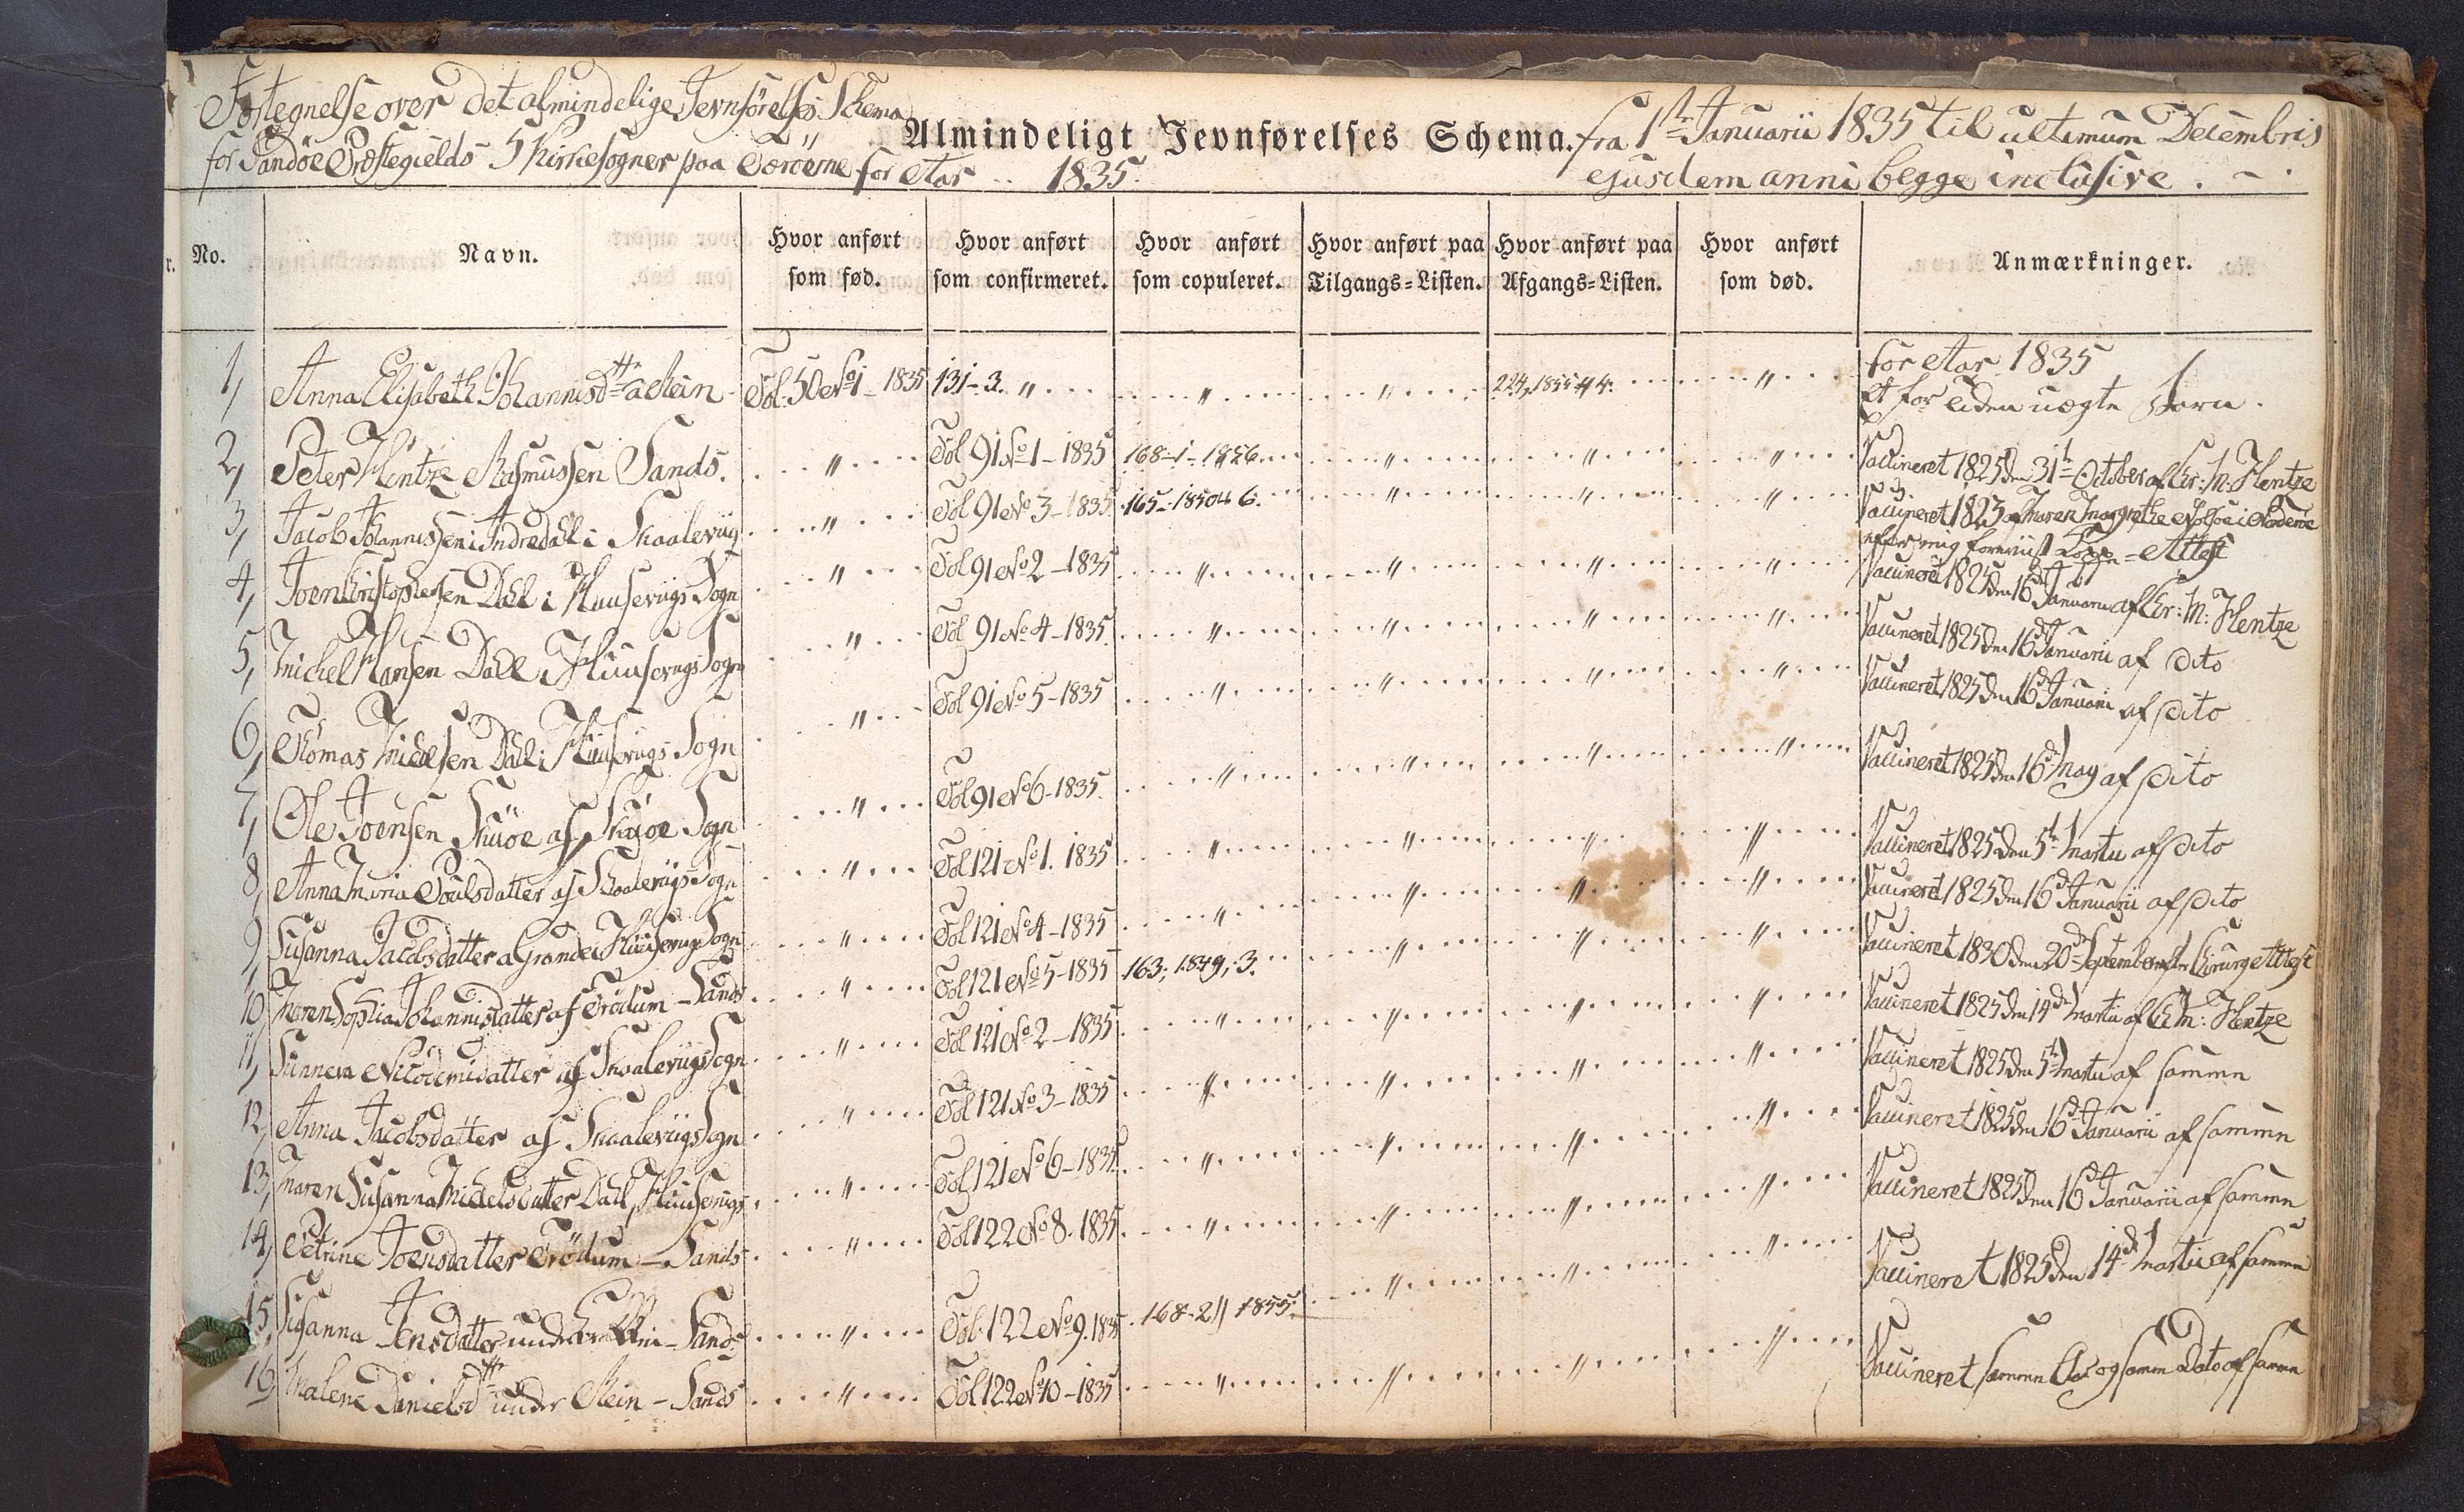 Fortegnelse over det almindelige Jevnførelses Schema
for Sandöe Præstegields 5 Kirkesogner paa Færöerne for Aar 1835.
Almindeligt Jevnførelses Schema.
fra 1ste Januarii 1835 til ultimum Decembris
ejusdem anni begge inclusive.
No. Navn. Hvor anført som fød. Hvor anført som confirmeret. Hvor anført som copuleret. Hvor anført paa Tilgangs-Listen. Hvor anført paa Afgangs-Listen. Hvor anført som død. Anmærkninger.
for Aar 1835
1, Anna Elisabeth Johannisdttr a Rein Fol. 50 No 1 - 1835 131-3. " " " 224, 1855 # 4. " Et for uden uægte Barn.
2, Peter Hintze Rasmussen Sands. " Fol 91 No 1 - 1835 168-1-1856. " " " Vaccineret 1825 den 31te October af Chr: M: Hentze
3, Jacob Johannissen i Indredahl i Skaalevüg " Fol 91 No 3 - 1835 165-1850 # 6. " " " Vaccineret 1823 af Maren Margrethe
efter mig foreviist Attest
4, Joen Christophersen Dahl i Huusevügs Sogn " Fol 91 No 2 - 1835 " " " " Vaccineret 1825 den 16de Januarii af Chr: M: Hentze
5, Michel Hansen Dahl i Huusevugs Sogn " Fol 91 No 4 - 1835 " " " " Vaccineret 1825 den 16de Januarii af dito
6, Thomas Michelsen Dahl i Huusevugs Sogn " Fol 91 No 5 - 1835 " " " " Vaccineret 1825 den 16de Januarii af dito
7, Ole Joensen Skuöe af Skuöe Sogn " Fol 91 No 6 - 1835. " " " " Vaccineret 1825 den 16de May af dito
8, Anna Maria Poulsdatter af Skaalevügs Sogn " Fol 121 No 1. 1835 " " " " Vaccineret 1825 den 5te Martii af dito
9, Susanna Jacobsdatter a Gronde i Huusevugs Sogn " Fol 121 No 4 - 1835 " " " " Vaccineret 1825 den 16de Januarii af dito
10, Maren Sophia Johannisdatter af Trödum - Sands " Fol 121 No 5 - 1835 163; 1849, 3. " " " Vaccineret 1830 den 20de Septembr Chirurg Attest
11, Sunneva Nicodemidatter af Skaalevügs Sogn " Fol 121 No 2 - 1835 " " " " Vaccineret 1825 den 14de Martii af Chr M: Hentze
12, Anna Jacobsdatter af Skaalevügs Sogn " Fol 121 No 3 - 1835 " " " " Vaccineret 1825 den 5te Martii af samme
13, Maren Susanna Michelsdatter Dahl, Huusevugs " Fol 121 No 6 - 1835 " " " " Vaccineret 1825 den 16de Januarii af samme
14, Petrine Joensdatter Trödum - Sands " Fol 122 No 8. 1835 " " " " Vaccineret 1825 den 16de Januarii af samme
15, Susanna Jensdatter under - Sands " Fol. 122 No 9. 1835 168-2 # 1855. " " " Vaccineret 1825 den 14de Martii af samme
16, Malene Danielsdttr under Rein - Sands " Fol 122 No 10 - 1835 " " " " Vaccineret samme Aar og samme Dato af samme